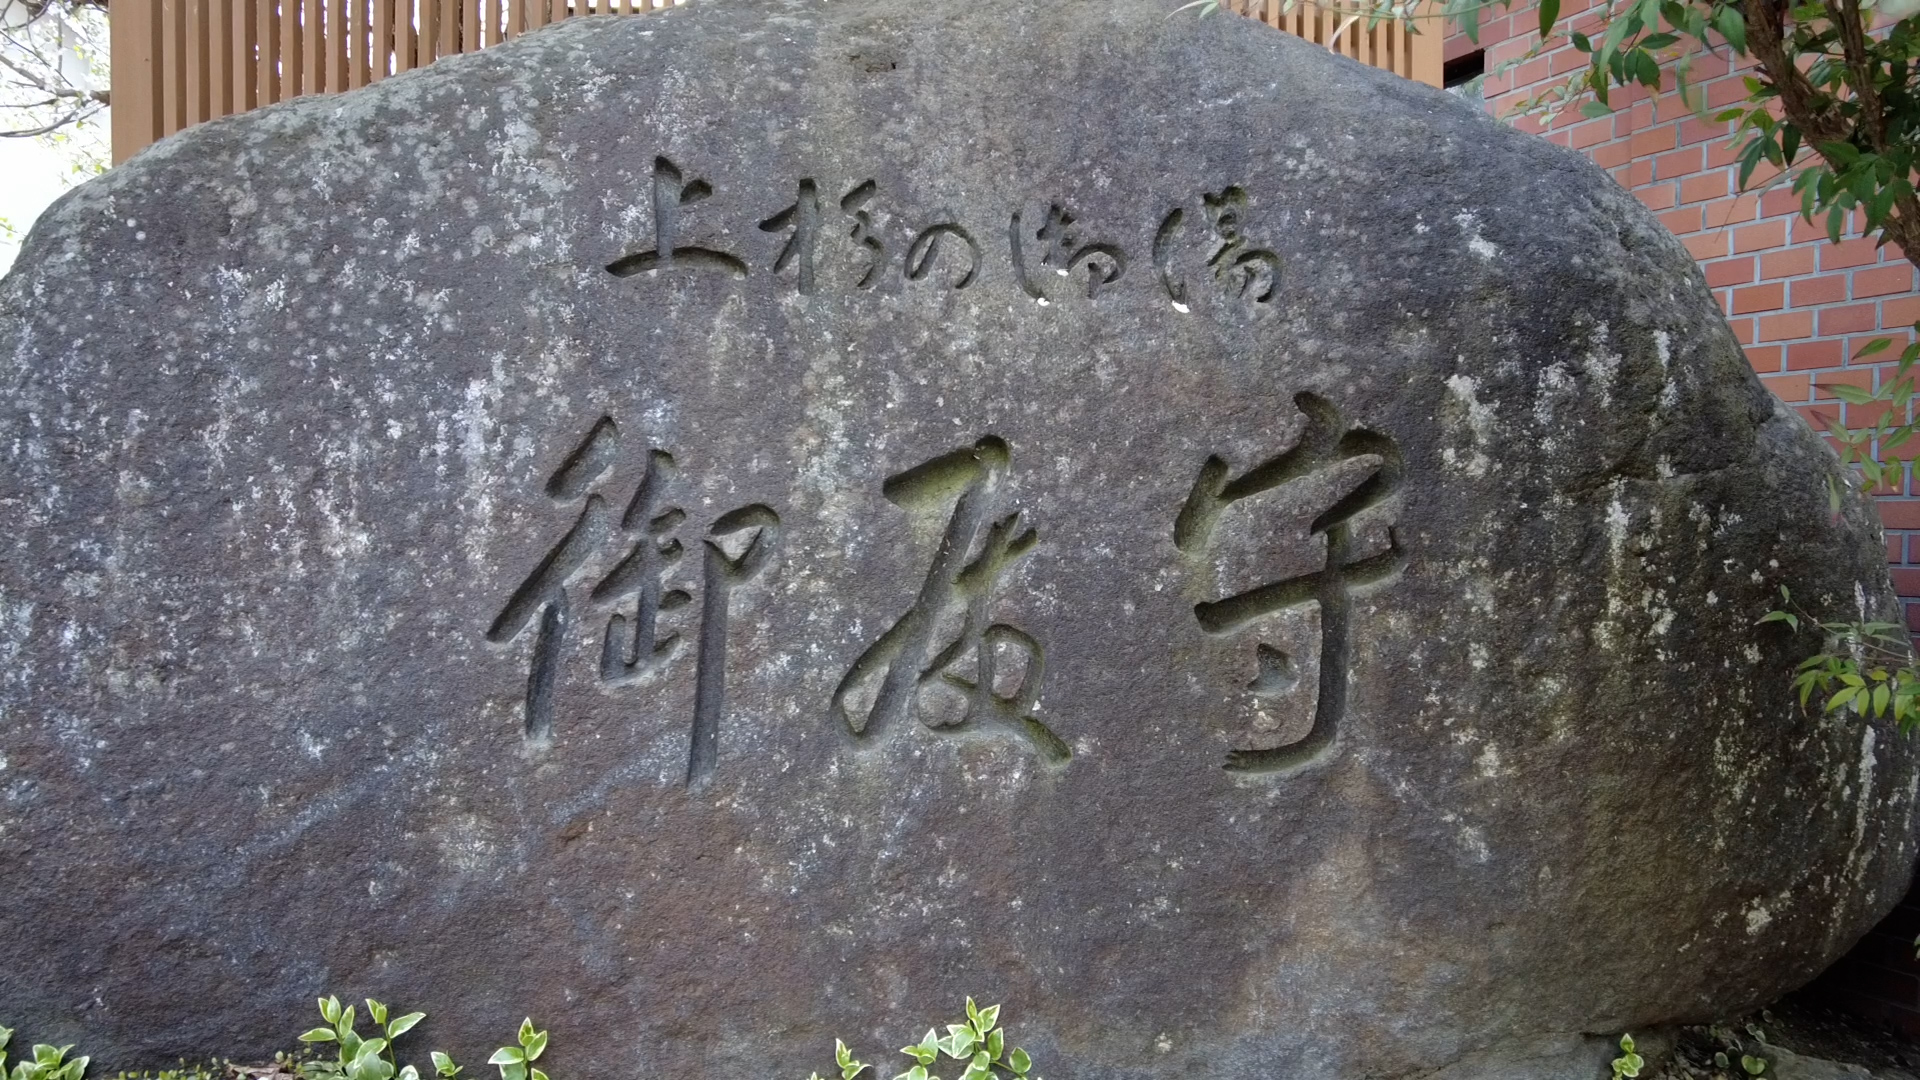 上杉の御湯
御殿守